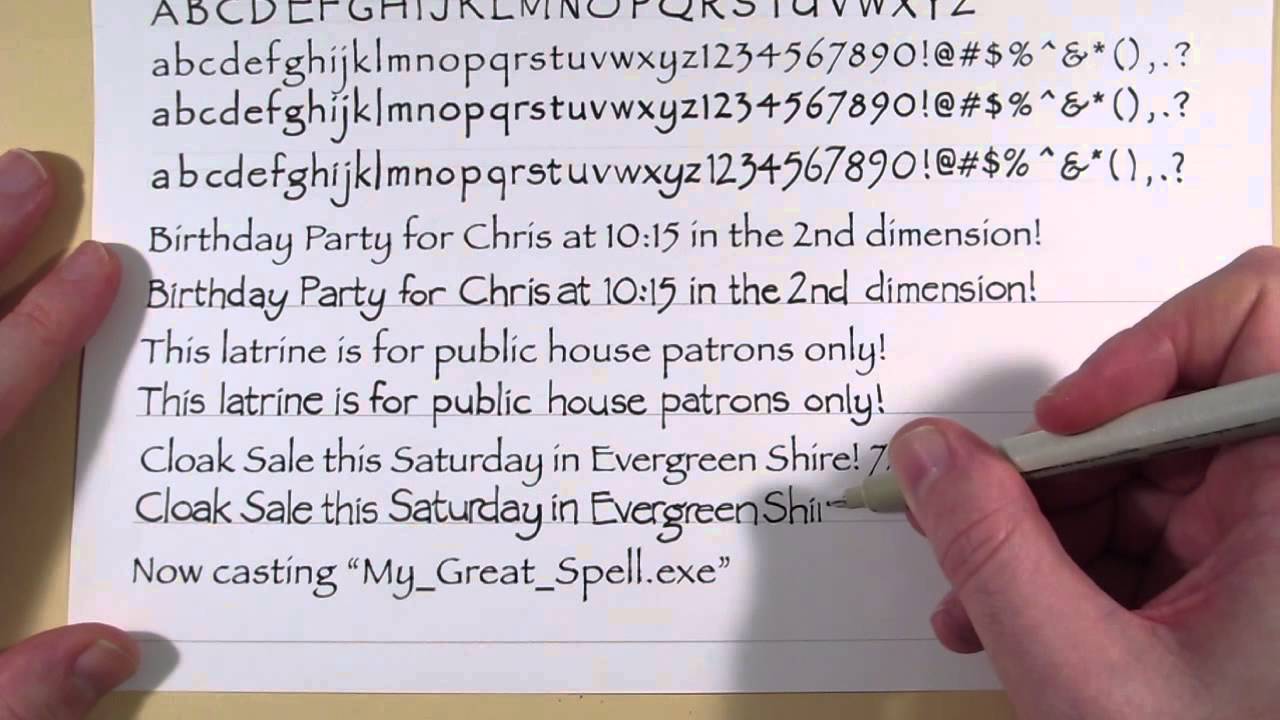 ABCDEFGHIJKLMNOPQRSTUVWXYZ
abcdefghijklmnopqrstuvwxyz1234567890!@#$%^&*(),.?
abcdefghijklmnopqrstuvwxyz1234567890!@#$%^&*(),.?
abcdefghijklmnopqrstuvwxyz1234567890!@#$%^&*(),.?
Birthday Party for Chris at 10:15 in the 2nd dimension!
Birthday Party for Chris at 10:15 in the 2nd dimension!
This latrine is for public house patrons only!
This latrine is for public house patrons only!
Cloak Sale this Saturday in Evergreen Shire!
Cloak Sale this Saturday in Evergreen
Now casting “My_Great_Spell.exe”